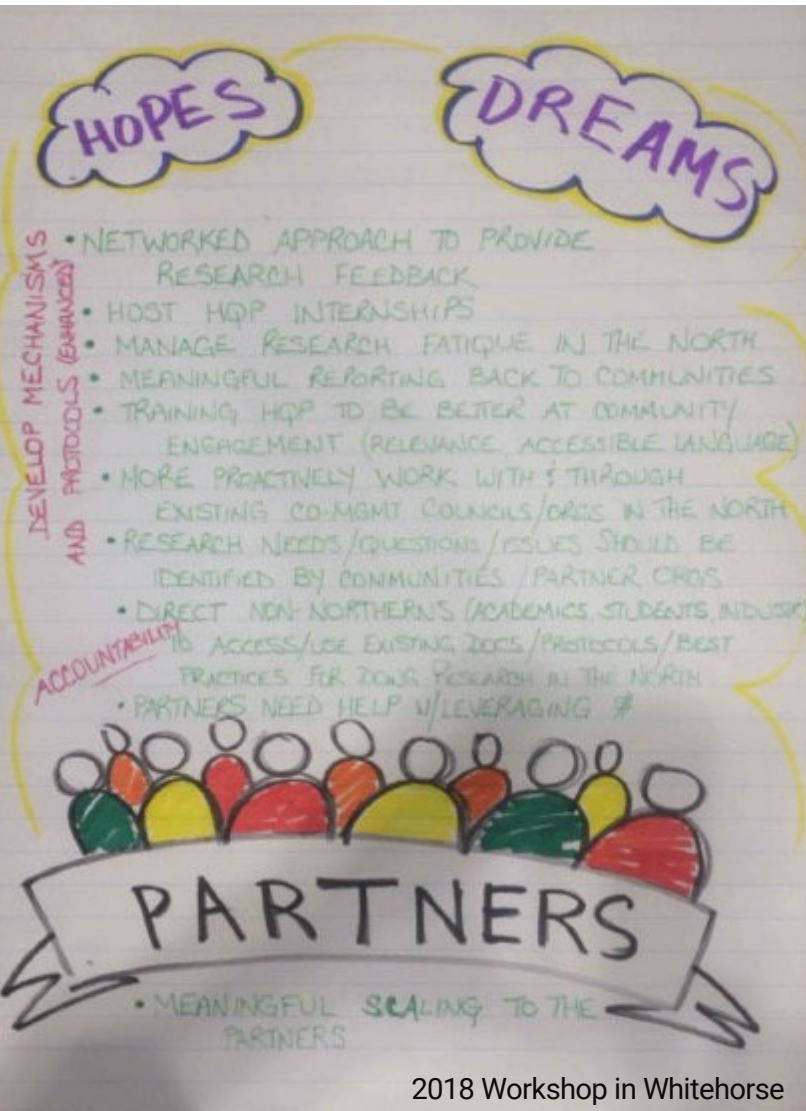 HOPES
DREAMS
DEVELOP MECHANISMS
AND PROTOCOLS (ENHANCED)
• NETWORKED APPROACH TO PROVIDE
RESEARCH FEEDBACK
• HOST HQP INTERNSHIPS
• MANAGE RESEARCH FATIQUE IN THE NORTH
• MEANINGFUL REPORTING BACK TO COMMUNITIES
• TRAINING HQP TO BE BETTER AT COMMUNITY
ENGAGEMENT (RELEVANCE, ACCESSIBLE LANGUAGE)
• MORE PROACTIVELY WORK WITH & THROUGH
EXISTING CO-MGMT COUNCILS/ORGS IN THE NORTH
• RESEARCH NEEDS/QUESTIONS/ISSUES SHOULD BE
IDENTIFIED BY COMMUNITIES/PARTNER ORGS
• DIRECT NON-NORTHERN'S (ACADEMICS, STUDENTS,
ACCOUNTABILITY
TO ACCESS/USE EXISTING DOCS/PROTOCOLS/BEST
PRACTICES FOR DOING RESEARCH IN THE NORTH
• PARTNERS NEED HELP W/LEVERAGING $
PARTNERS
• MEANINGFUL SCALING TO THE
PARTNERS
2018 Workshop in Whitehorse